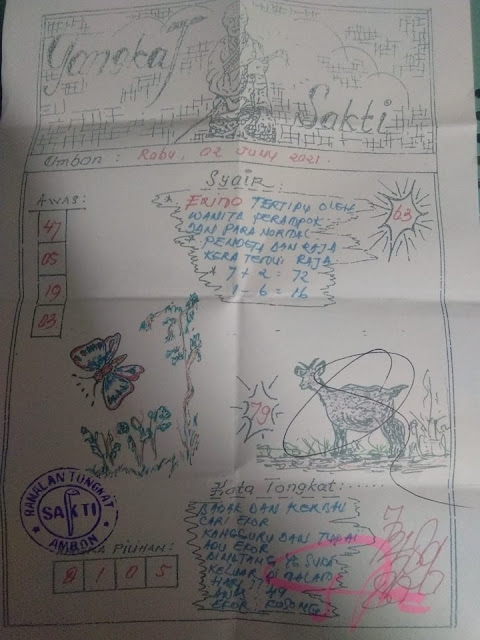 Tongkat
Sakti
Ambon : Rabu, 02 Juny 2021
Syair:
AWAS:
47
05
19
83
ERIDO TERTIPU OLEH
WANITA PERAMPOK
DAN PARANORMAL
PENDETA DAN RAJA
KERA TEMUI RAJA
7 + 2 = 72
1 - 6 = 16
63
79
RAMALAN TUNGKAT
SAKTI
AMBON
PILIHAN:
2 1 0 5
Kata Tongkat:......
BADAK DAN KERBAU
CARI EKOR
KANGGURU DAN TUPAI
ADU EKOR
BINTANG YG SUKA
KELUAR DI MALAM
HARI
49
EKOR KOSONG